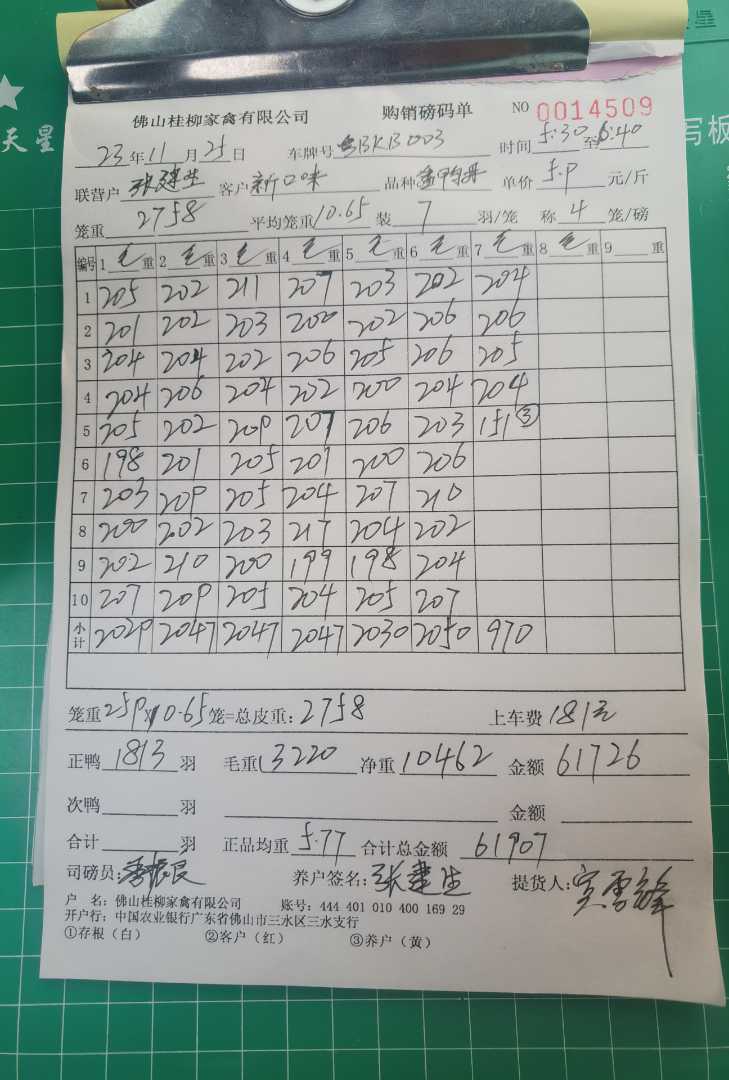 佛山桂柳家禽有限公司 购销磅码单 NO 0014509
23年11月25日 车牌号 BKB003 时间 5:30至6:40
联营户 张建生 客户 新口味 品种 单价 5.9 元/斤
笼重 2758 平均笼重 10.65 装 7 羽/笼 称 4 笼/磅
编号 1 毛重 2 毛重 3 毛重 4 毛重 5 毛重 6 毛重 7 毛重 8 毛重 9 重
1 205 202 211 207 203 202 204
2 201 202 203 200 202 206 206
3 204 204 202 206 205 206 205
4 204 206 204 202 200 204 204
5 205 202 209 207 206 203 151③
6 198 201 205 201 200 206
7 203 209 205 204 207 210
8 200 202 203 217 204 202
9 202 210 200 199 198 204
10 207 209 205 204 205 207
小计 2029 2047 2047 2047 2030 2050 970
笼重259×10.65笼=总皮重：2758 上车费 181元
正鸭 1813 羽 毛重 13220 净重 10462 金额 61726
次鸭 羽 金额
合计 羽 正品均重 5.77 合计总金额 61907
司磅员： 养户签名：张建生 提货人：
户 名：佛山桂柳家禽有限公司 账号：444 401 010 400 169 29
开户行：中国农业银行广东省佛山市三水区三水支行
①存根（白） ②客户（红） ③养户（黄）
天星
写板